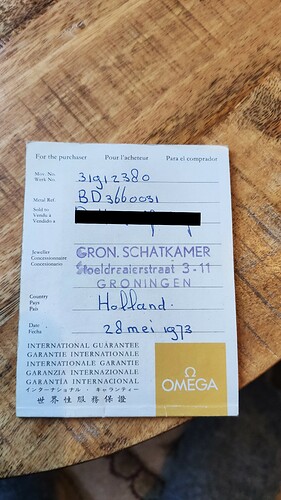 For the purchaser Pour l'acheteur Para el comprador
Mov. No.
Work No. 31912380
Metal Ref. BD 3660031
Sold to
Vendu à
Vendido a
Jeweller
Concessionnaire
Concesionario
GRON. SCHATKAMER
Stoeldraaierstraat 3-11
GRONINGEN
Country
Pays
País
Holland.
Date
Fecha
28 mei 1973
INTERNATIONAL GUARANTEE
GARANTIE INTERNATIONALE
INTERNATIONALE GARANTIE
GARANZIA INTERNAZIONALE
GARANTÍA INTERNACIONAL
インターナショナル・ギャランティー
世界性服務保證
Ω
OMEGA